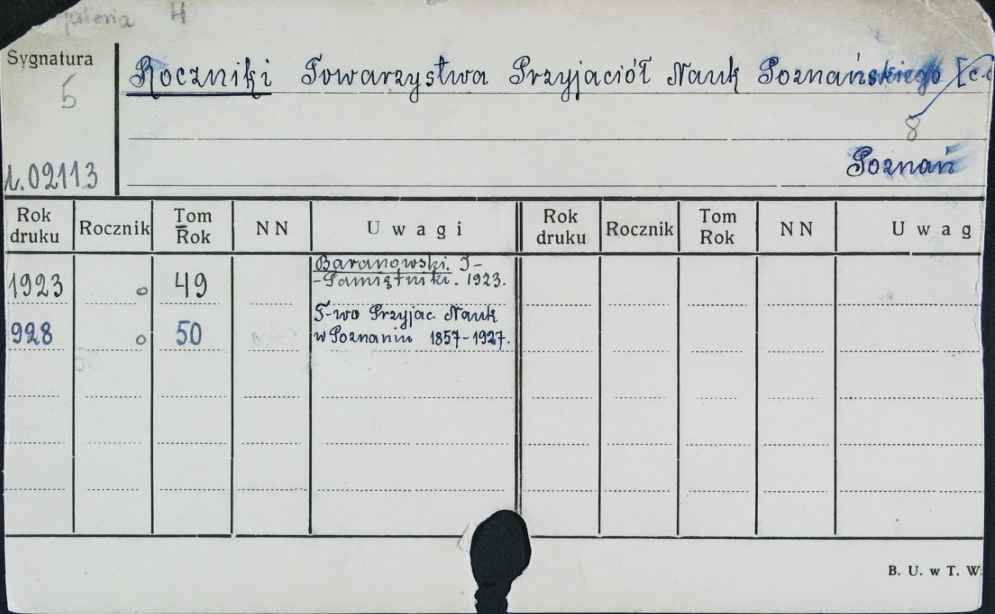 H
Sygnatura
5
Roczniki Towarzystwa Przyjaciół Nauk Poznańskiego
8
02113
Poznań
Rok druku Rocznik Tom Rok NN Uwagi Rok druku Rocznik Tom Rok NN Uwag
1923 o 49 Baranowski. T-
-Pamiętniki. 1923.
928 o 50 T-wo Przyjac. Nauk
w Poznaniu 1857-1927.
B. U. w T. W.